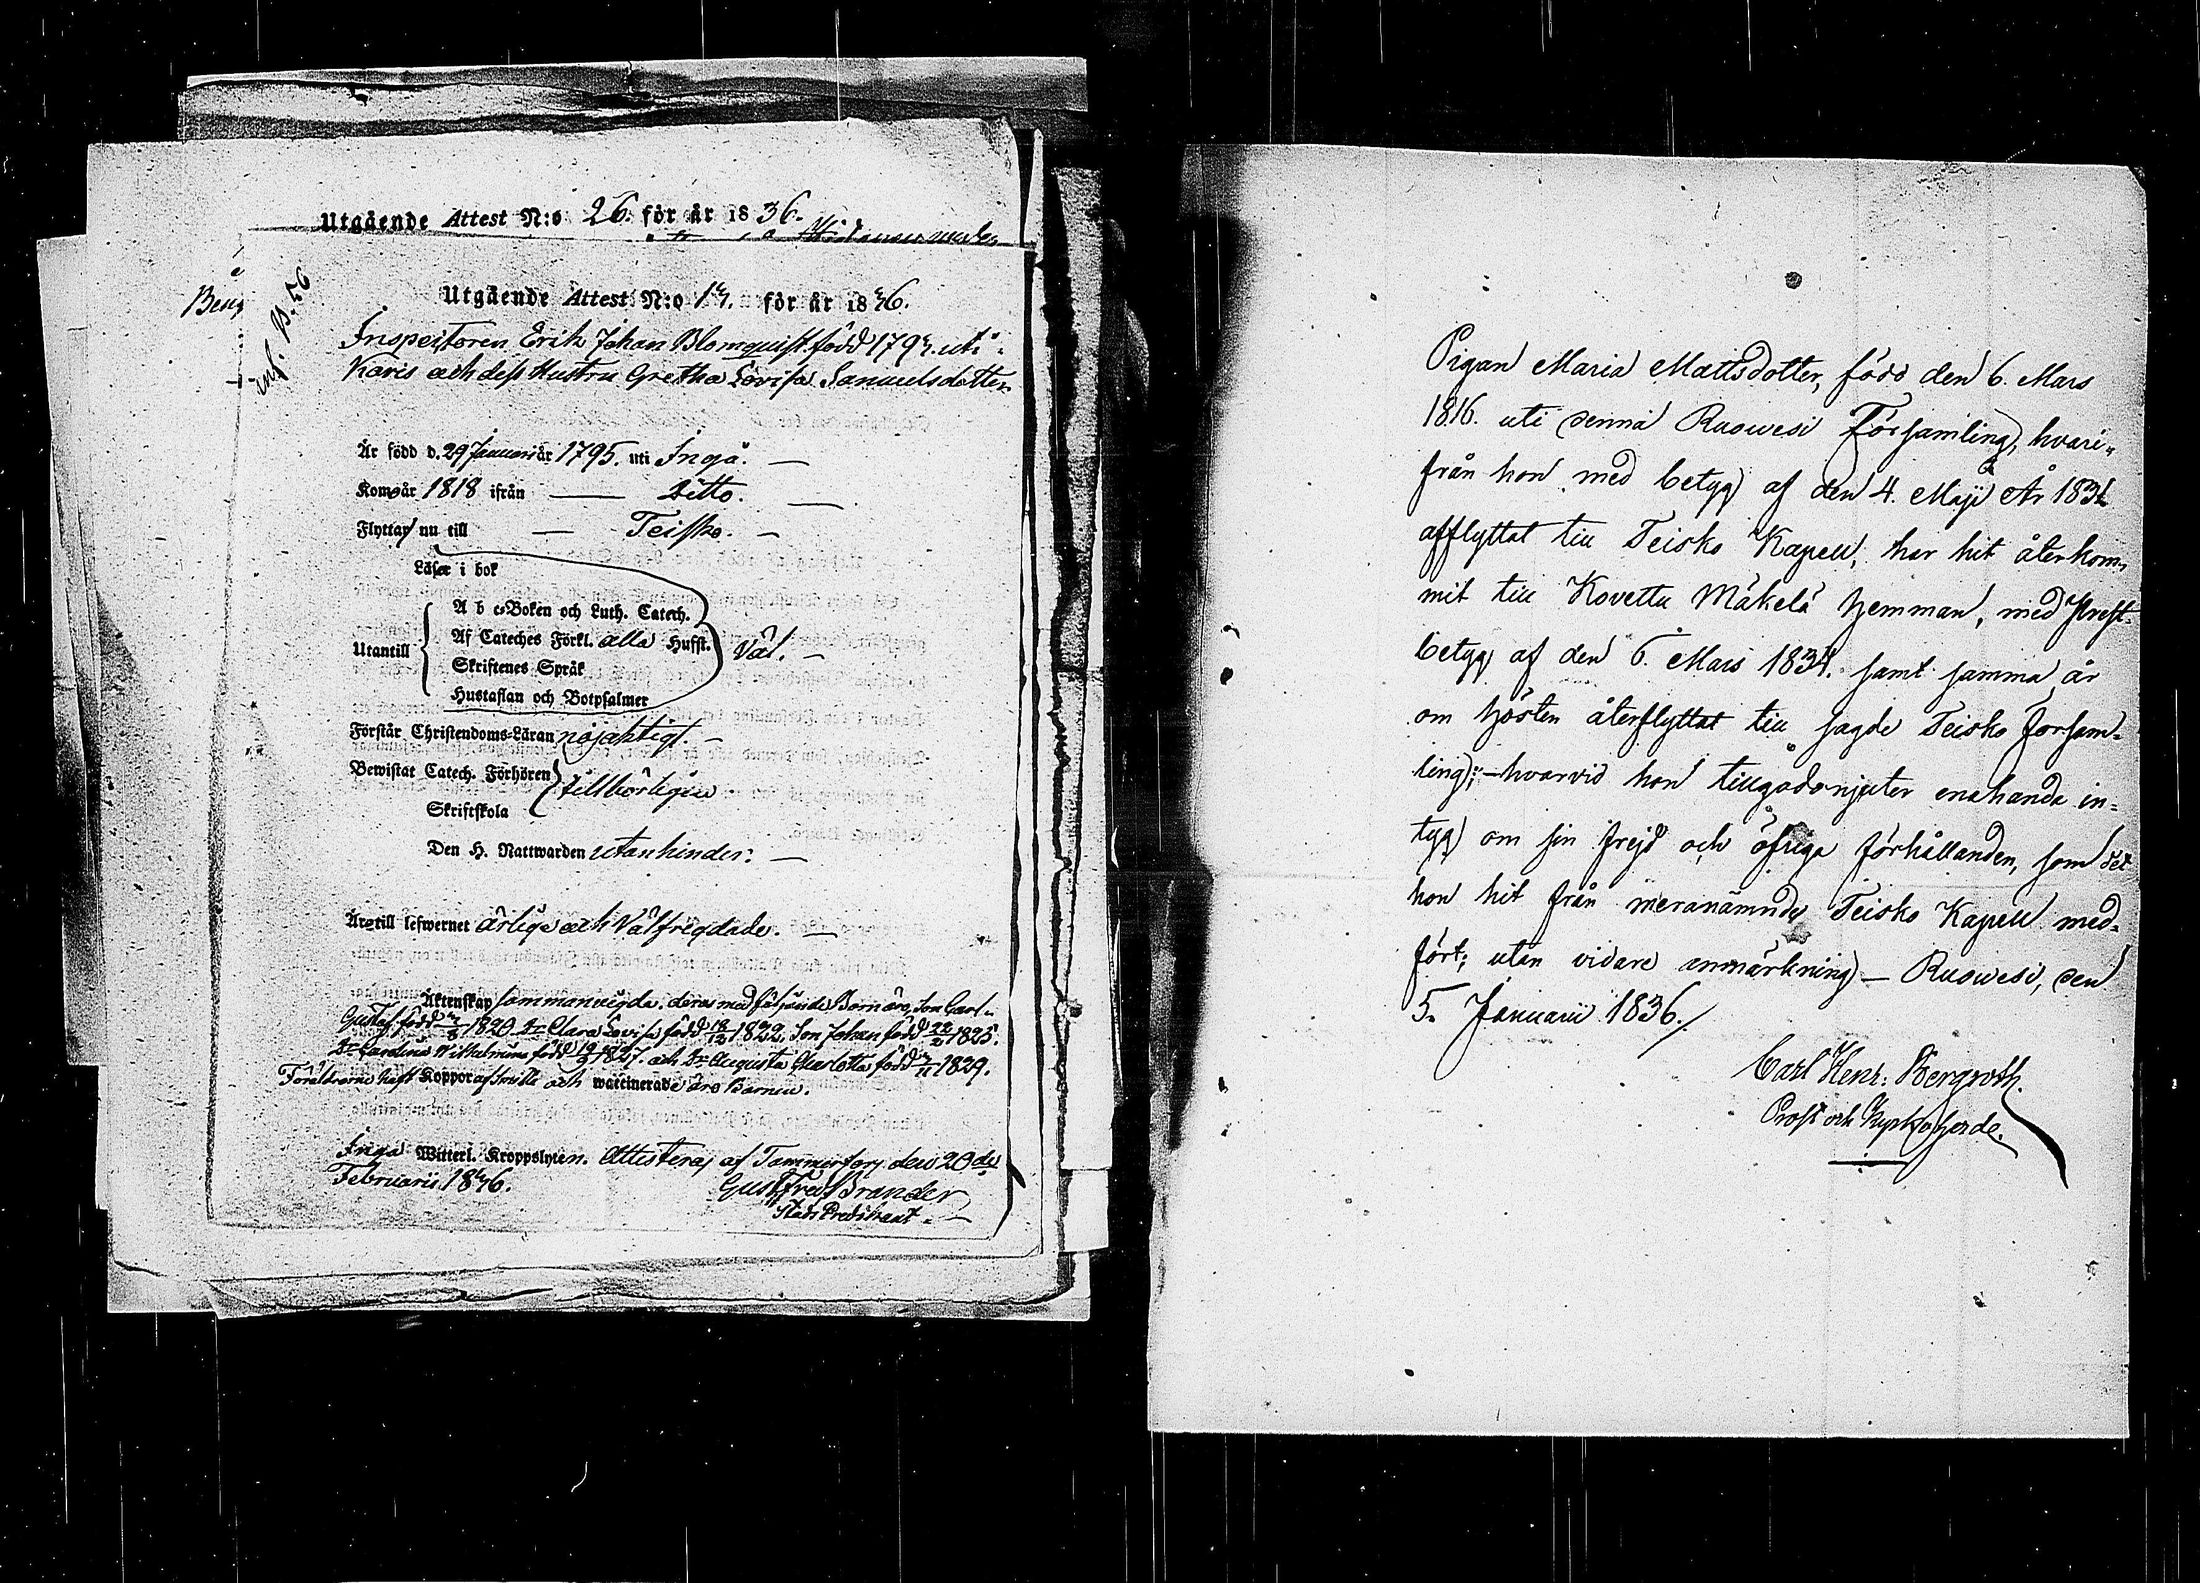 Utgående Attest N:o 26. för år 1836.
Beng
inf. P. 56
Utgående Attest N:o 13. för år 1836.
Inspectoren Erik Johan Blomquist född 1793. uti
Karis och dess Hustru Gretha Lovisa Samuelsdotter
Är född d. 29 Januari år 1795. uti Ingå. —
Kom år 1818 ifrån — Ditto. —
Flyttar nu till — Teisko. —
Läser i bok
A b c-Boken och Luth. Catech.
Af Cateches Förkl. alla Husst.
Utantill
Wäl. —
Skriftenes Språk
Hustaflan och Botpsalmer
Förstår Christendoms-Läran nöjaktigt. —
Bewistat Catech. Förhören
tillbörligen
Skriftskola
Den H. Nattwarden utan hinder. —
Äro till lefwernet ärlige och Välfrägdade. —
Äktenskap sammanvigde. deras medföljande Barn äro, Son Carl
Gustaf född 1820. Dr Clara Lovisa född 1822. Son Johan född 1825.
Dr Carolina Wilhelmina född 1827. och Dr Augusta Charlotta född 1829.
Föräldrarne haft Koppor och waccinerade äro Barnen.
Inga Witterl. Kroppslyten. Attesteras af Tammerfors den 20de
Februarii 1836.
Gust. Fred. Brander
Stads Predikant.
Pigan Maria Mattsdotter, född den 6. Mars
1816. uti denna Ruowesi Församling, hvari-
från hon med betyg af den 4. Maji År 1831
afflyttat till Teisko Kapell, har hit återkom-
mit till Kovetta Mäkelä hemman, med Prest-
betyg af den 6. Mars 1834. samt samma år
om hösten återflyttat till sagde Teisko Försam-
ling; – hvarvid hon tillgodonjuter enahanda in-
tyg om sin frejd och öfriga förhållanden, som det
hon hit från meranämnde Teisko Kapell med-
fört; utan vidare anmärkning – Ruowesi, den
5. Januarii 1836./
Carl Henr: Bergroth.
Prost och Kyrkoherde.